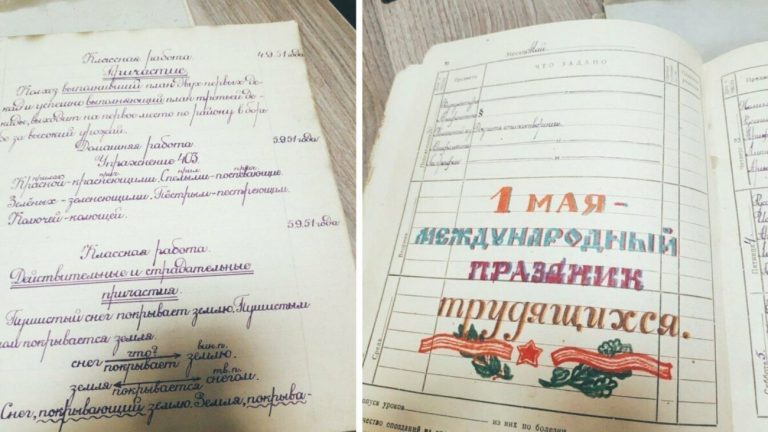 Классная работа. 4.9.51 года
Причастие.
Колхоз выполнивший план двух первых де-
кад и успешно выполняющий план третьей де-
кады, выходит на первое место по району в борь
бе за высокий урожай.
Домашняя работа 5.9.51 года
Упражнение 403.
прилаг. прич. прил. прич.
Красной-краснеющими. Спелыми-поспевающие.
Зелёных-зеленеющими. Пёстрым-пестреющим.
Колючей-колющей.
5.9.51 года
Классная работа.
Действительные и страдательные
причастия.
Пушистый снег покрывает землю. Пушистым
ом покрывается земля.
что? вин.п.
снег покрывает землю.
тв.п.
земля покрывается снегом.
Снег, покрывающий землю. Земля, покрыва-
Месяц Май
Предметы
ЧТО ЗАДАНО
§
1 МАЯ-
МЕЖДУНАРОДНЫЙ
ПРАЗДНИК
трудящихся.
Вторник
Среда
пуск уроков
из них по болезни
чество опозданий на